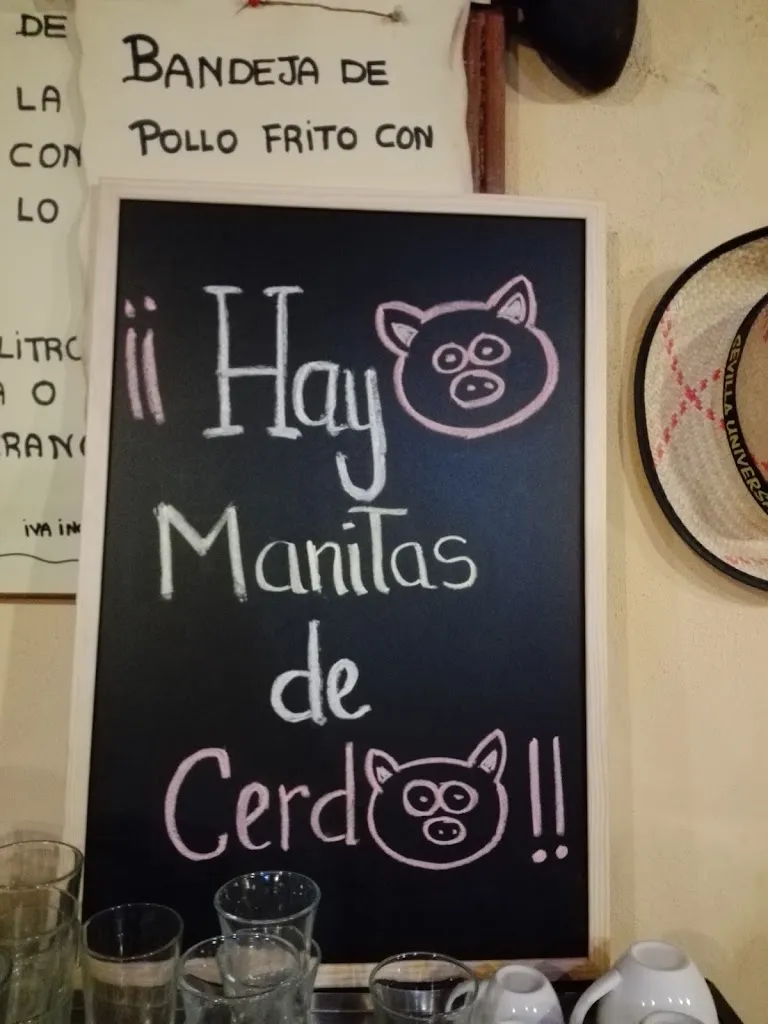 DE
LA
CON
LO
LITRO
A O
IVA INC
BANDEJA DE
POLLO FRITO CON
¡¡Hay
Manitas
de
Cerdo!!
SEVILLA UNIVERSA